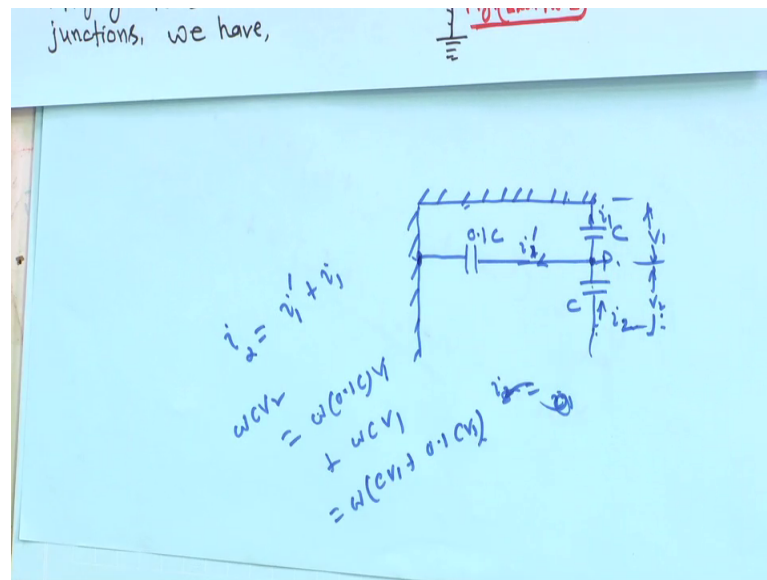 junctions, we have,
0.1C
i₁'
i₁
C
V₁
P.
C
i₂
V₂
i₂ = i₁' + i₁
ωCV₂
= ω(0.1C)V₁
+ ωCV₁
= ω(CV₁ + 0.1CV₁)